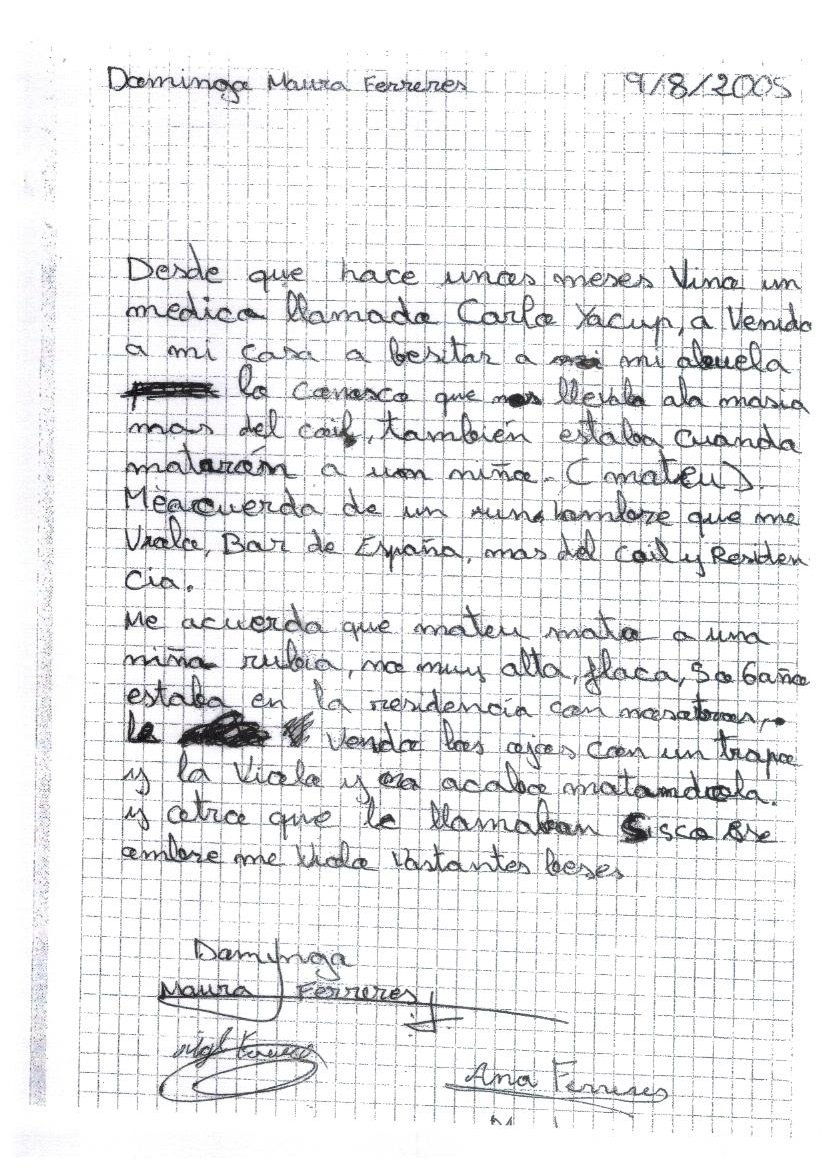 Dominga Maura Ferreres 9/8/2005
Desde que hace unos meses Vino un
medico llamado Carlo Yacup, a Venido
a mi casa a besitar a mi abuela
lo conosco que nos llebaba ala masia
mas del coil, también estaba cuando
mataron a una niña. (mateu).
Me acuerdo de un hombre que me
Violo, Bar de España, mas del coil y Residen
cia.
Me acuerdo que mateu mato a una
niña rubia, no muy alta, flaca, 5 o 6 años
estaba en la residencia con nosotros,
le Vendo los ojos con un trapo
y la Violo y acabo matandola.
y otro que le llamaban Sisco ese
ombre me Violo Vastantes beses
Dominga
Maura Ferreres
Ana Ferreres